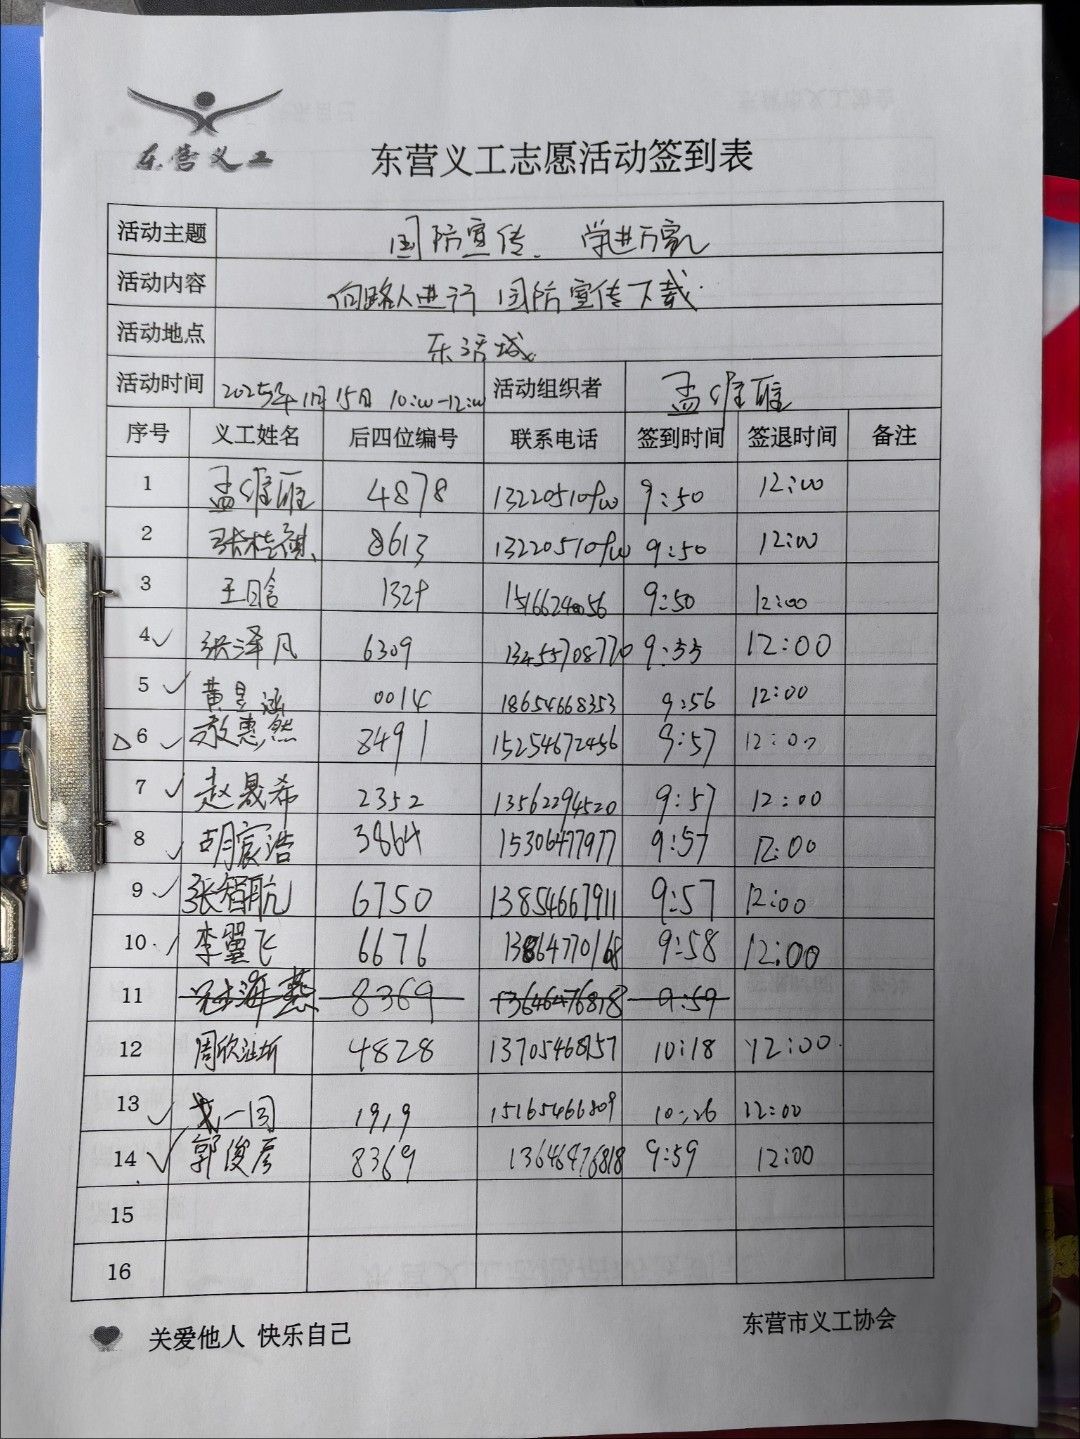 东营义工
东营义工志愿活动签到表
活动主题 国防宣传、学进万家
活动内容 向路人进行国防宣传下载.
活动地点 乐活城
活动时间 2025年11月15日 10:00-12:00 活动组织者 孟维雅
序号 义工姓名 后四位编号 联系电话 签到时间 签退时间 备注
1 孟维雅 4878 9:50 12:00
2 8613 9:50 12:00
3 王日晗 15166240056 9:50 12:00
4 ✓ 张泽凡 6309 13455708770 9:55 12:00
5 ✓ 黄昱涵 0014 18654668353 9:56 12:00
△6 ✓ 惠然 8491 15254672456 9:57 12:00
7 ✓ 赵晟希 2352 13562294520 9:57 12:00
8 ✓ 胡宸浩 3864 15306477977 9:57 12:00
9 ✓ 张智航 6750 13854667911 9:57 12:00
10 李翼飞 6676 13864770168 9:58 12:00
11 海燕 8369 13646476818 9:59
12 周欣 4828 13705468157 10:18 12:00
13 ✓ 一同 1919 15165466809 10:26 12:00
14 ✓ 郭俊彦 8369 13646476818 9:59 12:00
15
16
关爱他人 快乐自己
东营市义工协会